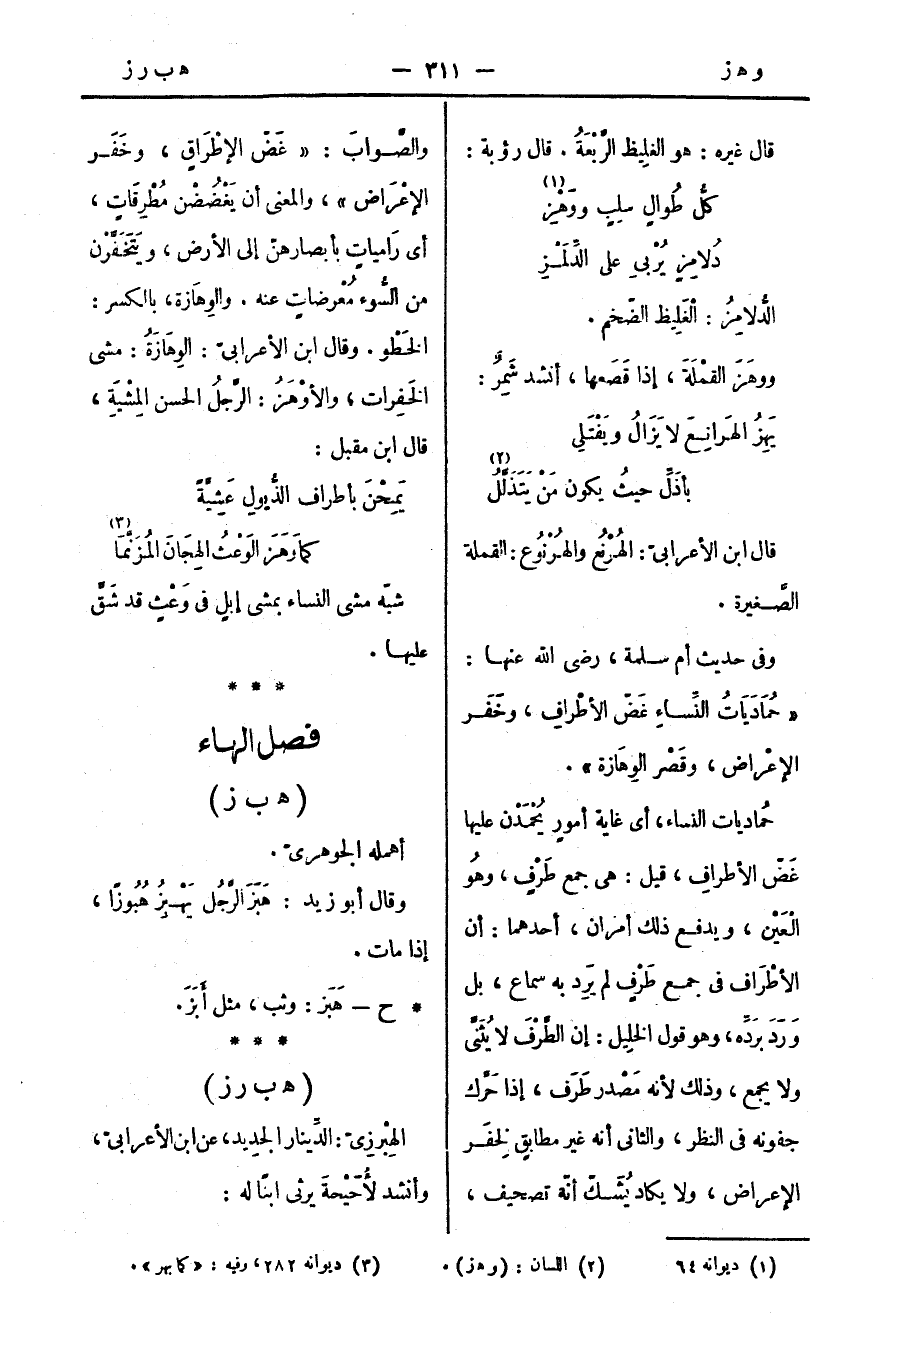 وهز — ٣١١ — هبرز
قال غيره : هو الغليظ الرَّبْعَةُ . قال رؤبة :
كلُّ طُوالٍ سلِبٍ ووَهْزِ (١)
دُلامِزٍ يُرْبِي على الدِّلَمْـزِ
الدُّلامِزُ : الْغَلِيظ الضّخم .
ووهَزَ القمْلَةَ ، إذا قَصَعها ، أنشد شَمِرٌ :
يَهِزُ الهَرانِـعَ لا يَزَالُ ويَفْتَلِي
بأذَلَّ حيثُ يكون مَنْ يَتَذَلَّلُ (٢)
قال ابن الأعرابىّ : الهُرْنُع والهُرْنُوع : القملة
الصَّـغيرة .
وفى حديث أم سـلمة ، رضى الله عنهـا :
« حُمَادَيَاتُ النِّسـاءِ غَضّ الأطْرافِ ، وخَفَـر
الإعْراض ، وقَصْر الوِهَازة » .
حُماديات النساء، أى غاية أمورٍ يُحْمَدْن عليها
غَضّ الأطرافِ ، قيل : هى جمع طَرْفٍ ، وهُو
الْعَيْن ، ويدفـع ذلك أمران ، أحدهما : أن
الأطْرَاف فى جمـع طَرْفٍ لم يَرِد به سماع ، بل
وَرَدَ بَرَدِّه، وهو قول الخليل : إن الطَّرْفَ لا يُثَنَّى
ولا يجمع ، وذلك لأنه مَصْدر طَرَف ، إذا حَرَّك
جفونه فى النظر ، والثانى أنه غير مطابقٍ لِخَفَـر
الإعراض ، ولا يكاد يُشَـكّ أنّه تصحيف ،
والصَّـوابَ : « غَضّ الإطْرَاقِ ، وخَفَـر
الإعْرَاض » ، والمعنى أن يَغْضُضْن مُطْرِقَاتٍ ،
أى رَامياتٍ بأبصارهنّ إلى الأرض ، ويَتَخَفَّرْن
من السُّوء مُعْرضاتٍ عنه . والوِهَازة، بالكسر :
الخَطْو . وقال ابن الأعرابىّ : الوِهَازَةُ : مشى
الخَفِرات ، والأوْهَزُ : الرَّجلُ الحسن المِشْيَةِ ،
قال ابن مقبل :
يَمِحْنَ بأطراف الذُّيولِ عَشِيَّةً
كما وَهَزَ الوَعْثُ الهِجَانَ المُزَنَّمَا (٣)
شبّه مشى النساء بمشى إبلٍ فى وَعْثٍ قد شَقَّ
عليهـا .
* * *
فصل الهاء
(هبز)
أهمله الجوهرىّ .
وقال أبو زيد : هَبَزَ الرَّجُل يَهْـبِزُ هُبُوزًا ،
إذا مات .
* ح — هَبَز : وثب ، مثل أَبَزَ .
* * *
(هبرز)
الهِبْرِزِىّ : الدِّينار الجديد، عن ابن الأعرابىّ ،
وأنشد لأُحَيْحةَ يرثى ابنًا له :
(١) ديوانه ٦٤ (٢) اللسان : (وهز) . (٣) ديوانه ٢٨٢ ، وفيه : « كما بهر » .